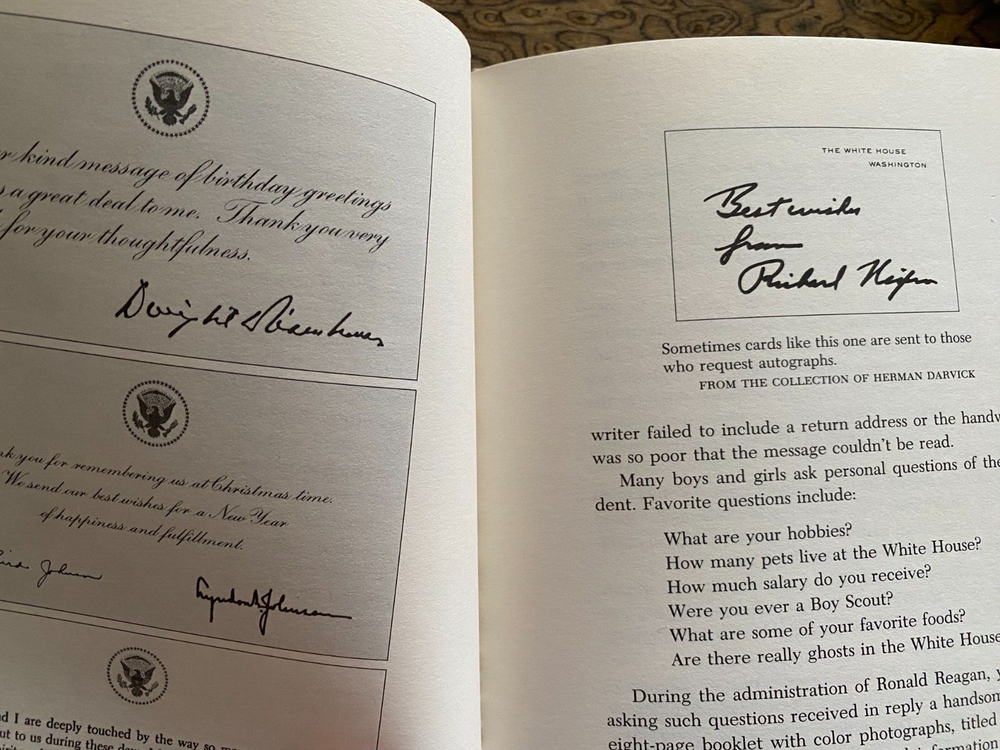 r kind message of birthday greetings
s a great deal to me. Thank you very
for your thoughtfulness.
Dwight Eisenhower
nk you for remembering us at Christmas time.
We send our best wishes for a New Year
of happiness and fulfillment.
Johnson
Lyndon B. Johnson
d I are deeply touched by the way so
ut to us during these
THE WHITE HOUSE
WASHINGTON
Best wishes
from
Richard Nixon
Sometimes cards like this one are sent to those
who request autographs.
FROM THE COLLECTION OF HERMAN DARVICK
writer failed to include a return address or the handw
was so poor that the message couldn't be read.
Many boys and girls ask personal questions of the
dent. Favorite questions include:
What are your hobbies?
How many pets live at the White House?
How much salary do you receive?
Were you ever a Boy Scout?
What are some of your favorite foods?
Are there really ghosts in the White House
During the administration of Ronald Reagan, y
asking such questions received in reply a handsom
eight-page booklet with color photographs, titled
formation